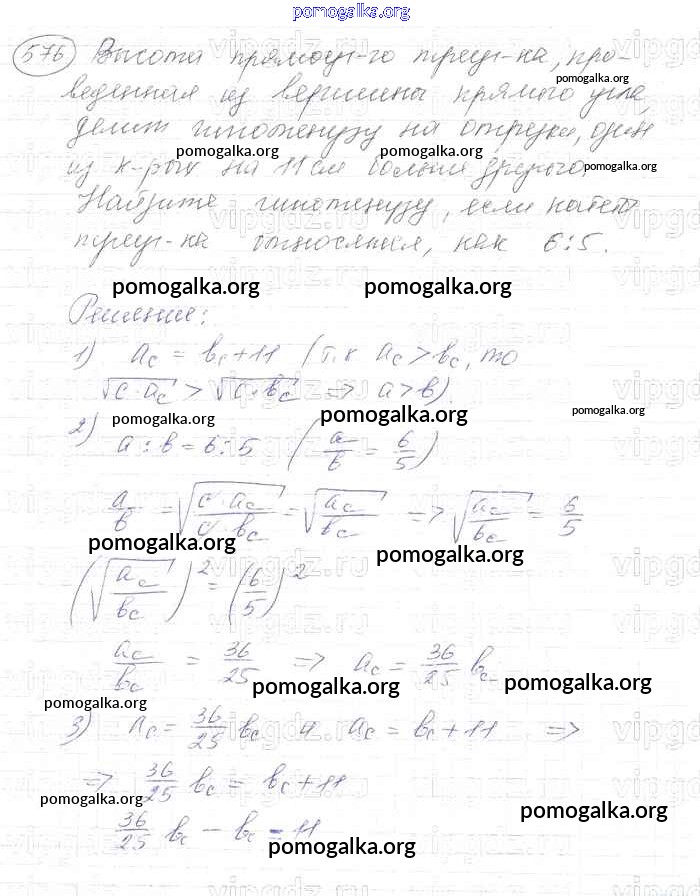 pomogalka.org
576 Высота прямоуг-го треуг-ка, про-
pomogalka.org
веденная из вершины прямого угла,
делит гипотенузу на отрезки, один
pomogalka.org pomogalka.org
из к-рых на 11 см больше другого.
pomogalka.org
Найдите гипотенузу, если катеты
треуг-ка относятся, как 6:5.
pomogalka.org pomogalka.org
Решение:
1) a_c = b_c + 11 (т.к a_c > b_c, то
√(c·a_c) > √(c·b_c) => a > b).
pomogalka.org pomogalka.org pomogalka.org
2) a : b = 6 : 5 (a/b = 6/5)
a/b = √(c·a_c / c·b_c) = √(a_c/b_c) => √(a_c/b_c) = 6/5
pomogalka.org pomogalka.org
(√(a_c/b_c))² = (6/5)²
a_c/b_c = 36/25 => a_c = 36/25 b_c
pomogalka.org pomogalka.org
pomogalka.org
3) a_c = 36/25 b_c и a_c = b_c + 11 =>
=> 36/25 b_c = b_c + 11
pomogalka.org pomogalka.org
36/25 b_c - b_c = 11
pomogalka.org